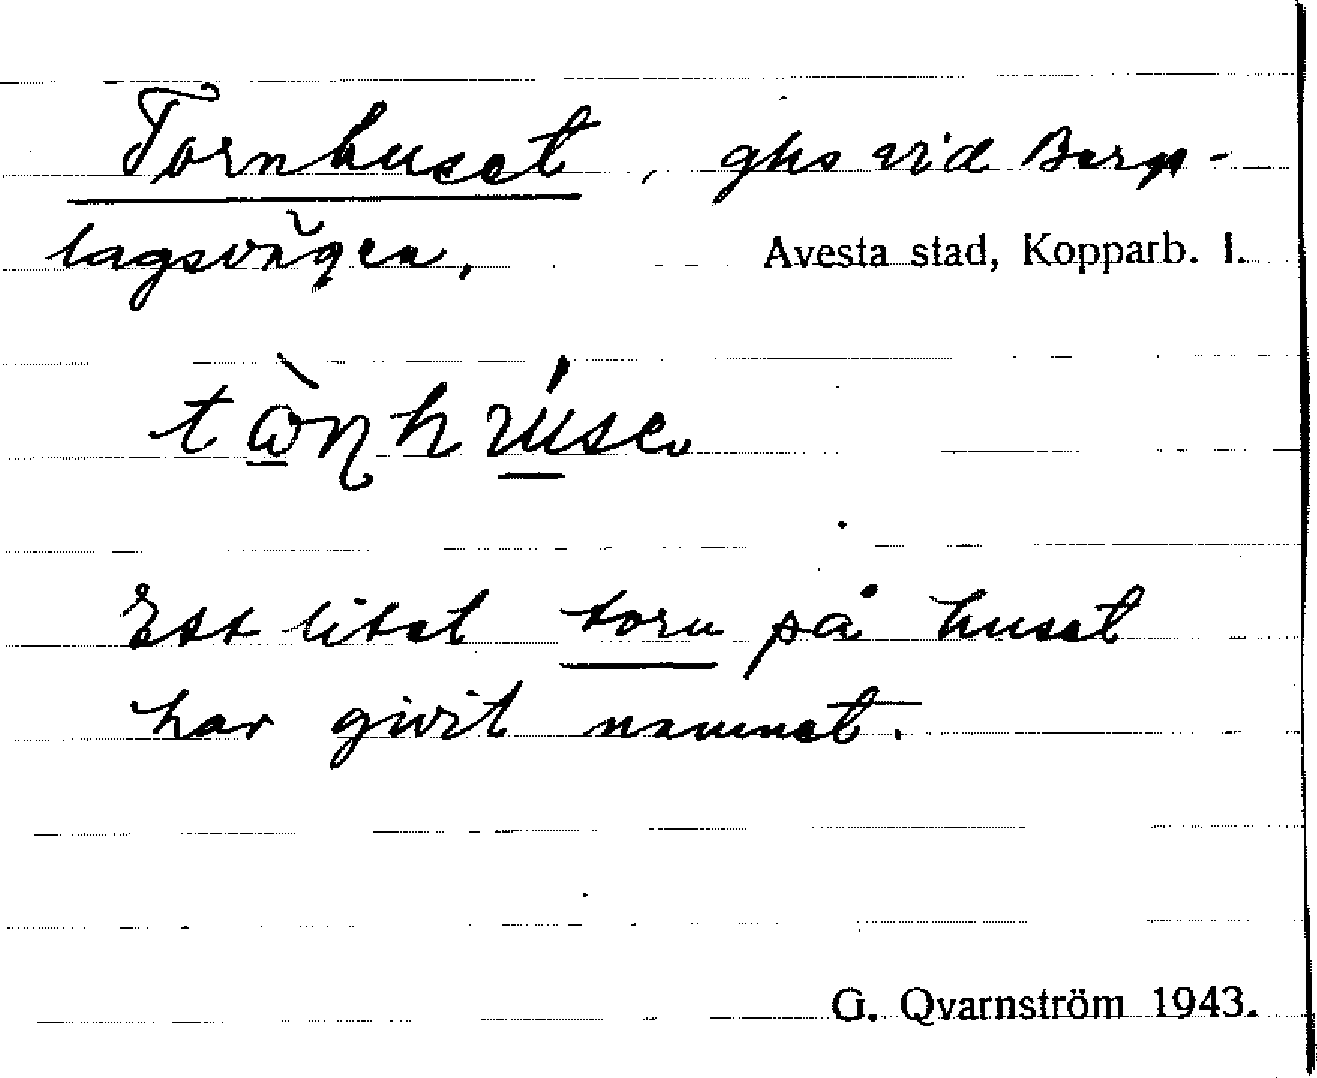 Tornhuset, ghs vid Bergs-
lagsvägen.
Avesta stad, Kopparb. l.
Ett litet torn på huset
har givit namnet.
G. Qvarnström 1943.